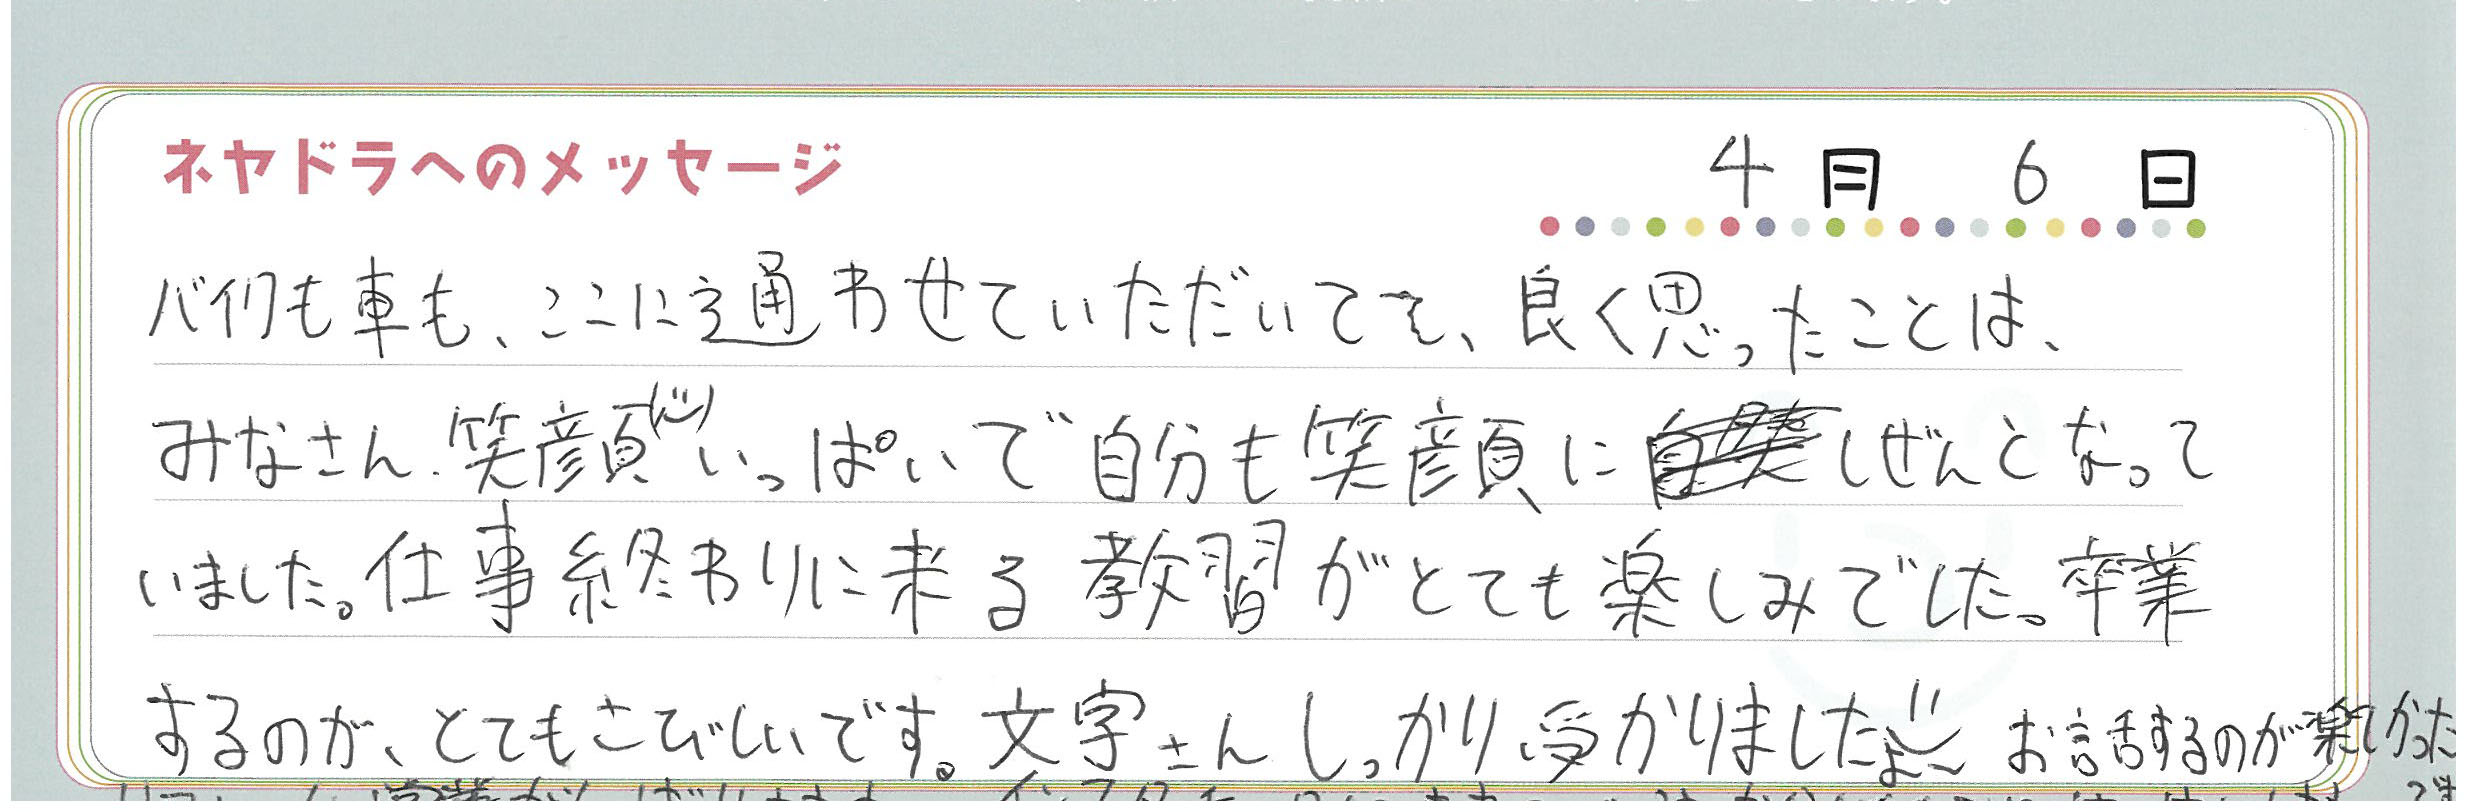 ネヤドラへのメッセージ
4月 6日
バイクも車も、ここに通わせていただいてて、良く思ったことは、
みなさん、笑顔いっぱいで自分も笑顔にしぜんとなって
いました。仕事終わりに来る教習がとても楽しみでした。卒業
するのが、とてもさびしいです。文字さんしっかり受かりましたよ〜 お話するのが楽しかった
です